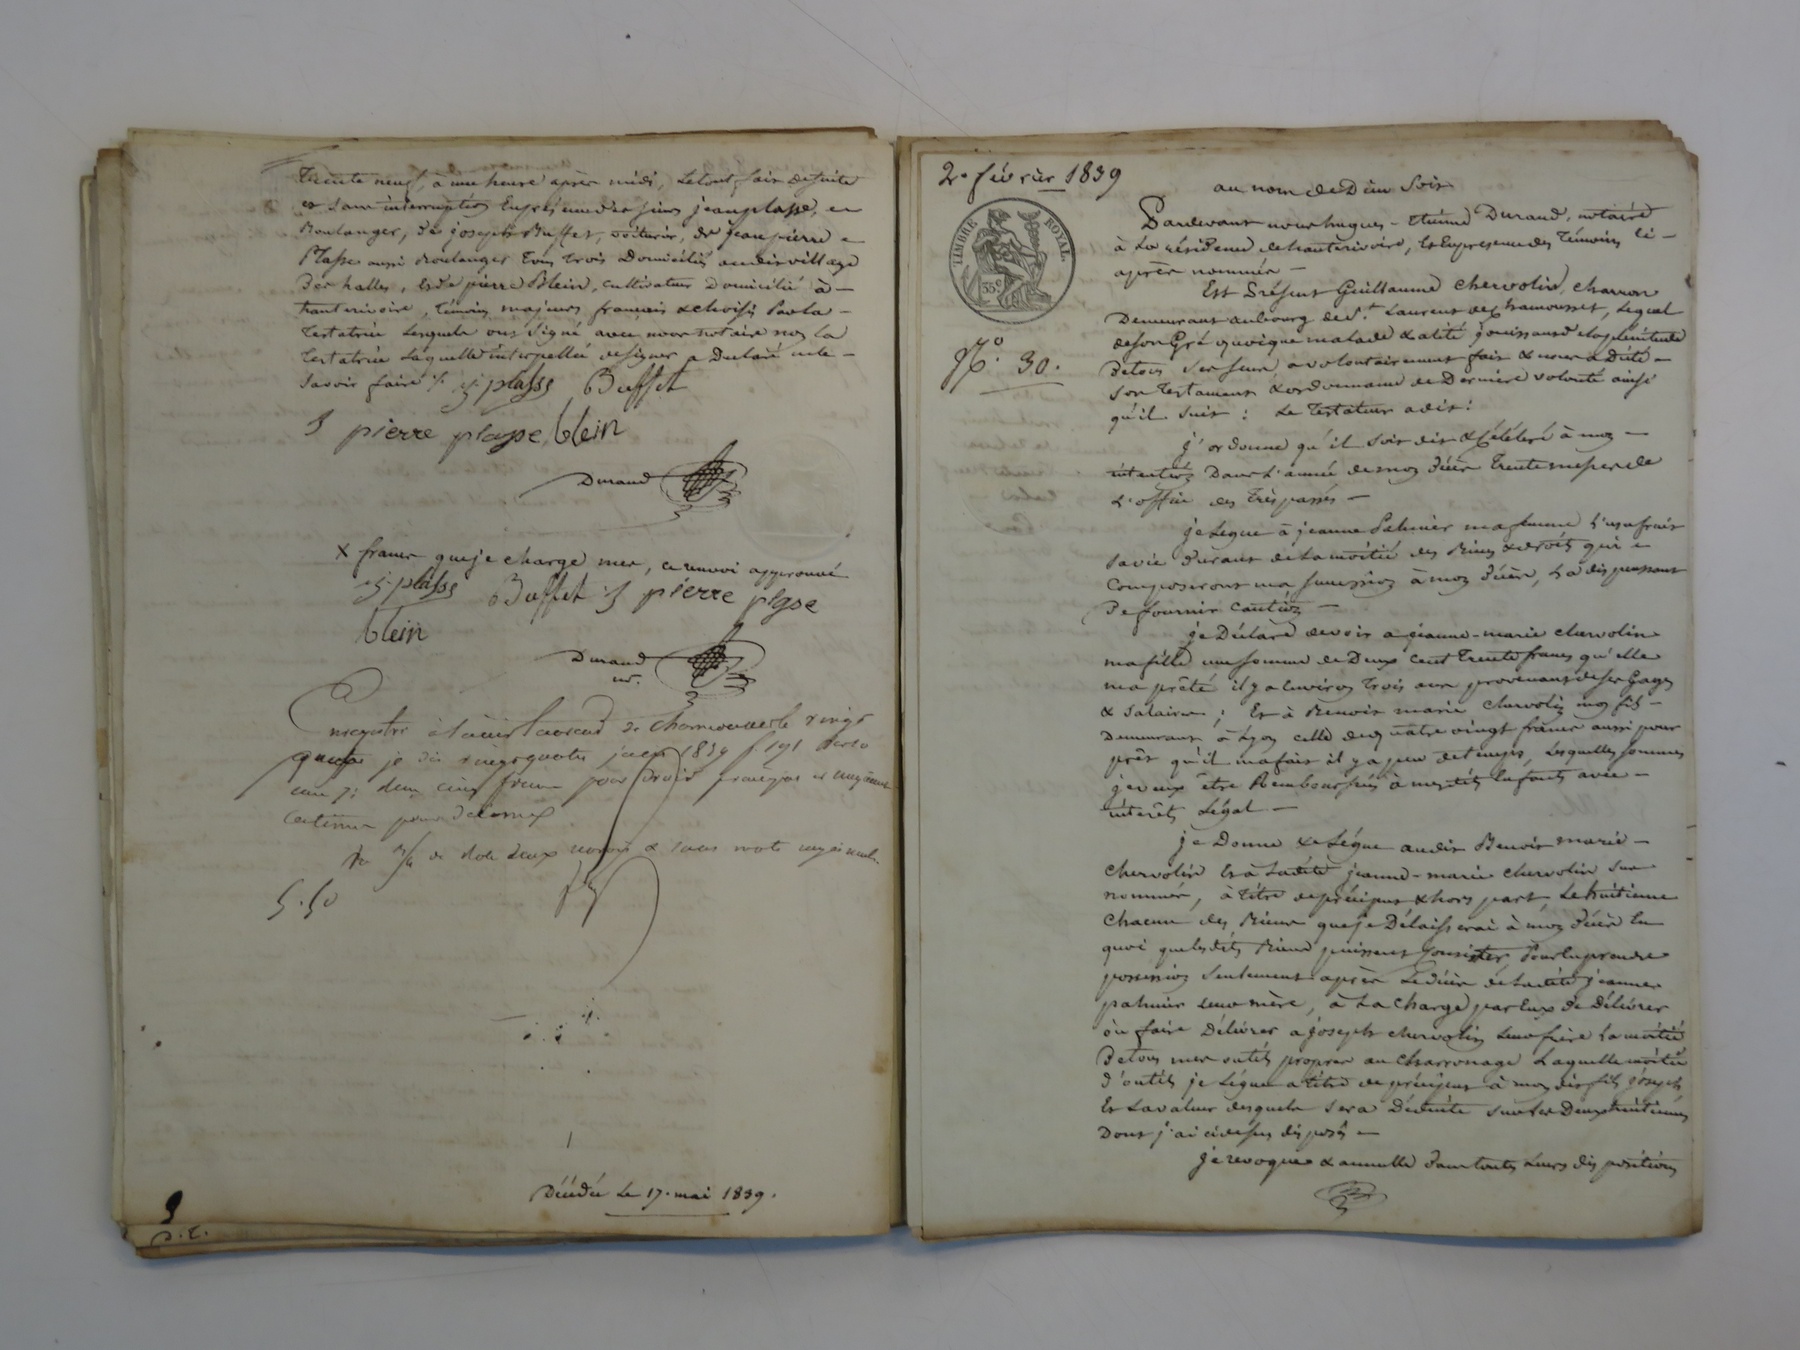 trente neuf, à une heure après midi, le tout fait de suite
et sans interruption en présence des sieurs jean plasse,
Boulanger, de joseph Buffet, voiturier, de jean pierre
Plasse aussi Boulanger tous trois Domiciliés au dit village
Des halles, et de pierre Blein, cultivateur Domicilié à
hauterivoire, témoins majeurs français & choisis par la
testatrice lesquels ont signé avec nous notaire non la
testatrice laquelle interpellée de signer a Déclaré ne le
savoir faire ./. j. plasse Buffet
j pierre plasse, blein
Durand
x francs que je charge mes, ce renvoi approuvé
j. plasse Buffet j pierre plasse
blein
Durand
nre.
Enregistré à Saint Laurent de Chamousset le vingt
quatre je dis vingt quatre juin 1839 f. 191 verso
cinq francs pour droit cinquante
centimes pour décime
5.50
Décédée Le 17. mai 1839.
2. février 1839
au nom de Dieu Soit
TIMBRE ROYAL.
35 c
N.o 30.
Pardevant nous hugues-Etienne Durand, notaire
à La résidence de hauterivoire, Et En présence des témoins ci-
après nommés
Est Présent Guillaume chervolin, charron
Demeurant au bourg de St. Laurent de chamousset, Lequel
de son Gré quoique malade & alité jouissant de la plénitude
De tous Ses sens a volontairement fait & nous a Dicté
son testament & ordonnance de Dernière volonté ainsi
qu'il suit : Le testateur a dit :
j'ordonne qu'il soit dit & Célébré à mon
intention Dans L'année de mon Décès trente messes de
L'office des trépassés
je Lègue à jeanne Palmier ma femme l'usufruit
sa vie Durant de La moitié des Biens & droits qui
composeront ma succession à mon Décès, La dispensant
De fournir caution
je Déclare devoir a jeanne-marie chervolin
ma fille une somme de Deux cent trente francs qu'elle
m'a prêté il y a Environ trois ans provenant de ses Gages
& salaires ; Et à Benoit marie chervolin mon fils
Demeurant à Lyon celle de quatre vingt francs aussi pour
prêt qu'il m'a fait il y a peu de temps, Lesquelles sommes
je veux être Remboursées à mes dits Enfants avec
intérêts Légal
je Donne & Lègue au dit Benoit marie
chervolin Et à La dite jeanne-marie chervolin sus
nommés, à titre de préciput & hors part, Le huitième
chacun des Biens que je Délaisserai à mon Décès En
quoi que les dits Biens puissent Consister, Pour En prendre
possession seulement après Le Décès de La dite jeanne
palmier Leur mère, à La charge par Eux de Délivrer
où faire Délivrer a joseph chervolin Leur frère La moitié
De tous mes outils propres au charronage Laquelle moitié
d'outils je Lègue a titre de préciput à mon dit fils joseph
Et La valeur desquels sera Déduite sur Les Deux huitièmes
Dont j'ai ci dessus disposés
je revoque & annulle Dans toutes Leurs dispositions